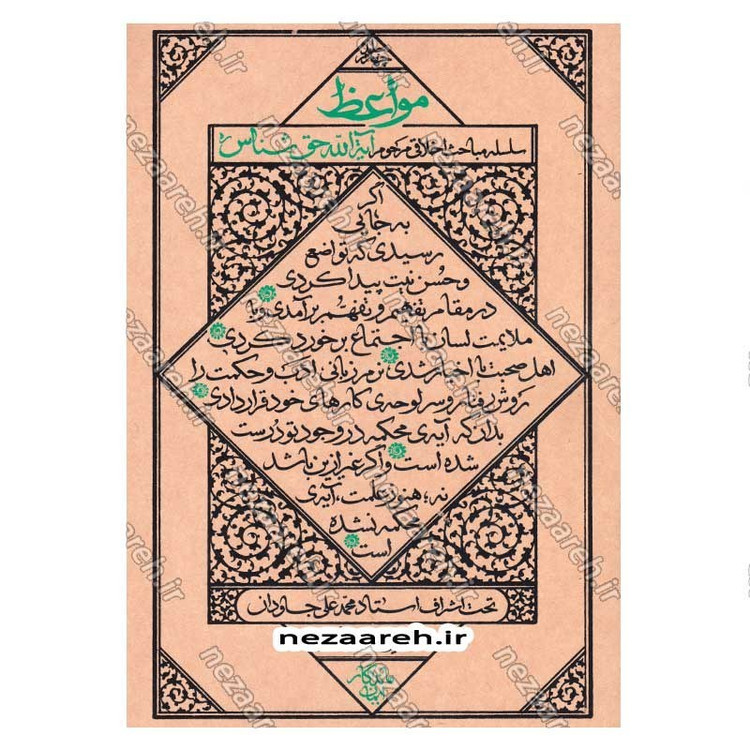 مواعظ
سلسله مباحث اخلاقی مرحوم آیة الله حق شناس ره
اگر
به جائی
رسیدی که تواضع
و حُسن نیت پیدا کردی
در مقام تفهیم و تفهّم برآمدی و با
ملایمت لسان با اجتماع برخورد کردی
اهل صحبت با اخیار شدی نرم زبانی ادب و حکمت را
روش رفتار و سرلوحه‌ی کارهای خود قرار دادی
بدان که آیه‌ی محکمه در وجود تو درست
شده است و اگر غیر از این باشد
نه، هنوز علمت، آیه‌ی
محکمه نشده
است
تحت اشراف استاد محمد علی جاودان
nezaareh.ir
ماندگار
nezaareh.ir